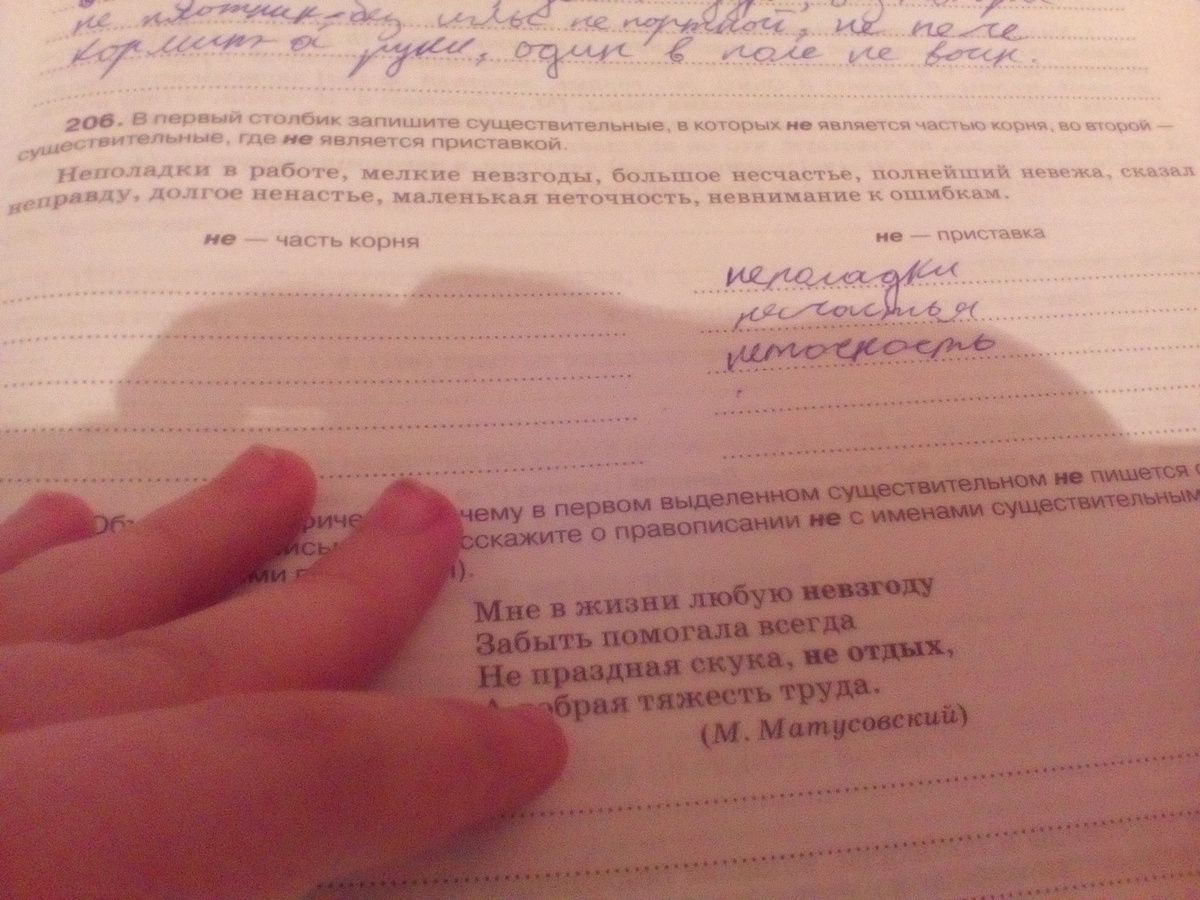 не плотник - без иглы не портной, не пеле
кормит а руки, один в поле не воин.
206. В первый столбик запишите существительные, в которых не является частью корня, во второй —
существительные, где не является приставкой.
Неполадки в работе, мелкие невзгоды, большое несчастье, полнейший невежа, сказал
неправду, долгое ненастье, маленькая неточность, невнимание к ошибкам.
не — часть корня
не — приставка
неполадки
несчастья
неточность
чему в первом выделенном существительном не пишется с
сскажите о правописании не с именами существительным
ми
Мне в жизни любую невзгоду
Забыть помогала всегда
Не праздная скука, не отдых,
А добрая тяжесть труда.
(М. Матусовский)